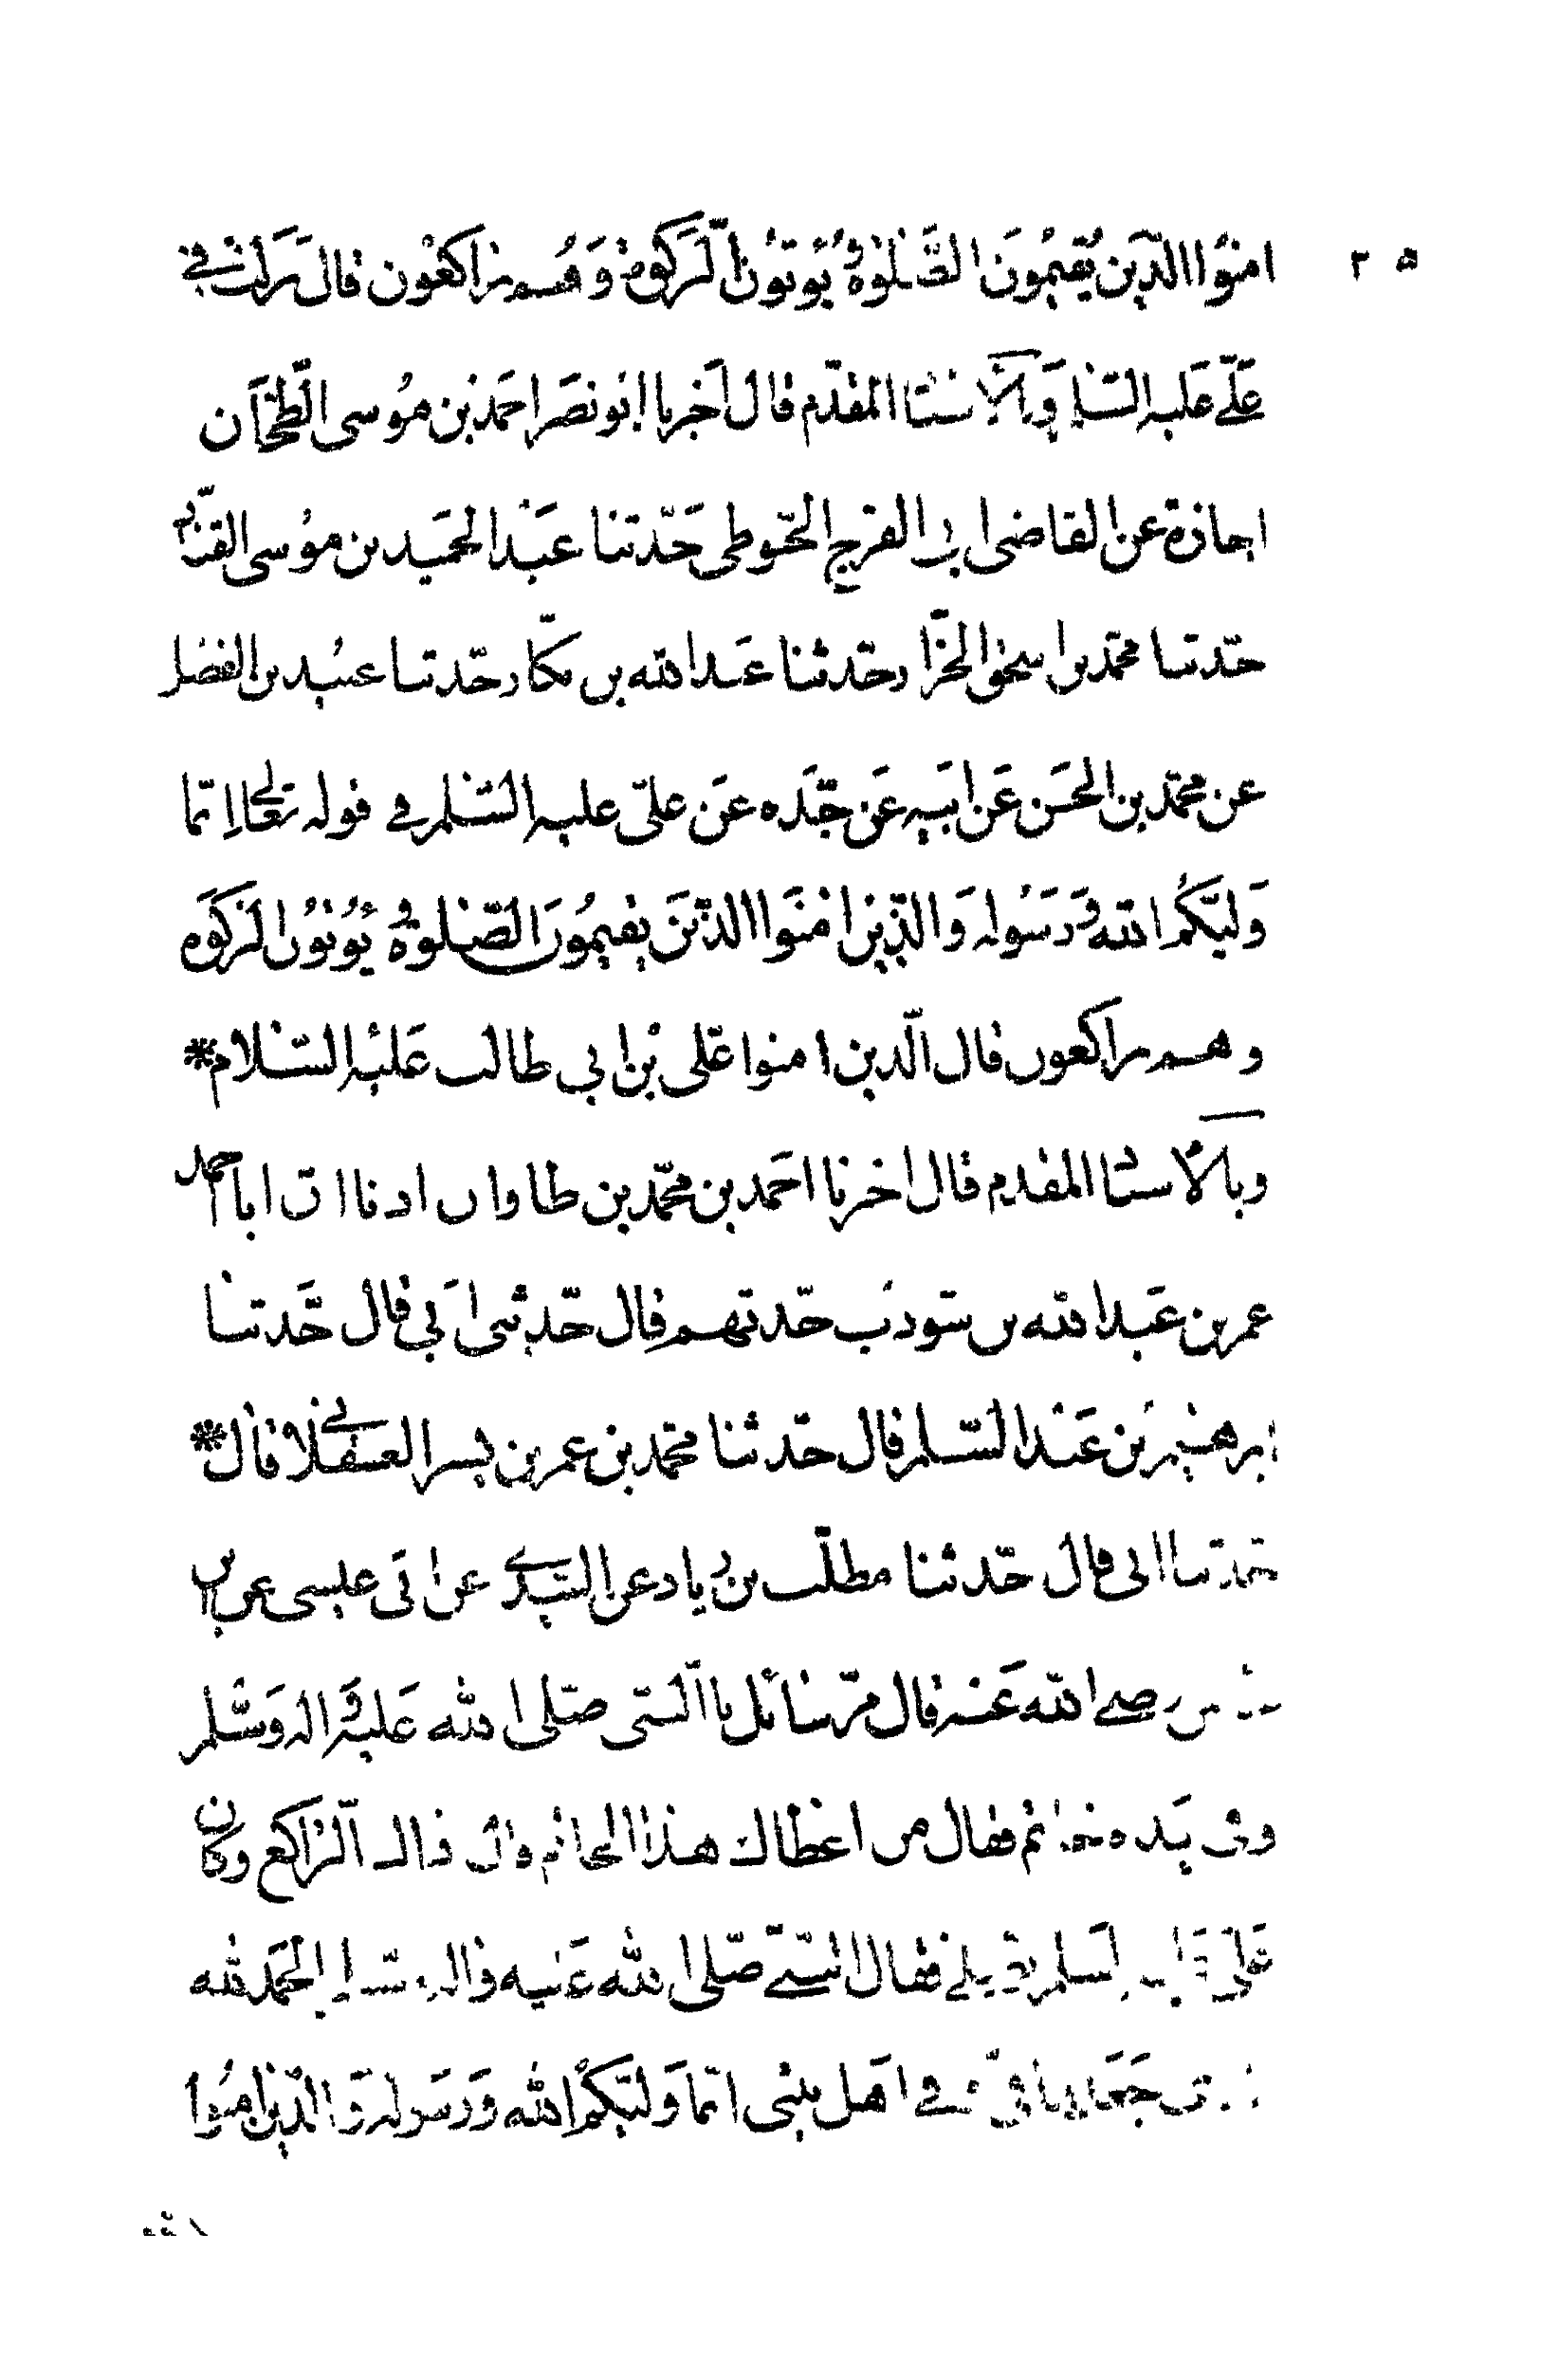 امنوا الذين يقيمون الصلوة و يؤتون الزكوة وهم راكعون قال نزلت في
علي عليه السلم وبالاسناد المقدم قال اخبرنا ابو نصر احمد بن موسى الطحان
اجازة عن القاضي ابي الفرج الخيوطي حدثنا عبد الحميد بن موسى القناد
حدثنا محمد بن اسحق الخزاز حدثنا عبد الله بن بكار حدثنا عبيد بن الفضل
عن محمد بن الحسن عن ابيه عن جده عن علي عليه السلم في قوله تعالى انما
وليكم الله و رسوله والذين امنوا الذين يقيمون الصلوة و يؤتون الزكوة
وهم راكعون قال الذين امنوا علي بن ابي طالب عليه السلام *
وبالاسناد المقدم قال اخبرنا احمد بن محمد بن طاوان اذنا ان ابا احمد
عمر بن عبد الله بن شوذب حدثهم قال حدثني ابي قال حدثنا
ابرهيم بن عبد السلم قال حدثنا محمد بن عمر بن بسر العسقلاني قال *
حدثنا ابي قال حدثنا مطلب بن زياد عن السدي عن ابي عيسى عن ابن
عباس رضي الله عنه قال مر سائل بالنبي صلى الله عليه واله وسلم
وفي يده خاتم فقال من اعطاك هذا الخاتم قال ذاك الراكع وكان
علي عليه السلم يصلي فقال النبي صلى الله عليه واله وسلم الحمد لله
الذي جعلها في وفي اهل بيتي انما وليكم الله ورسوله والذين امنوا